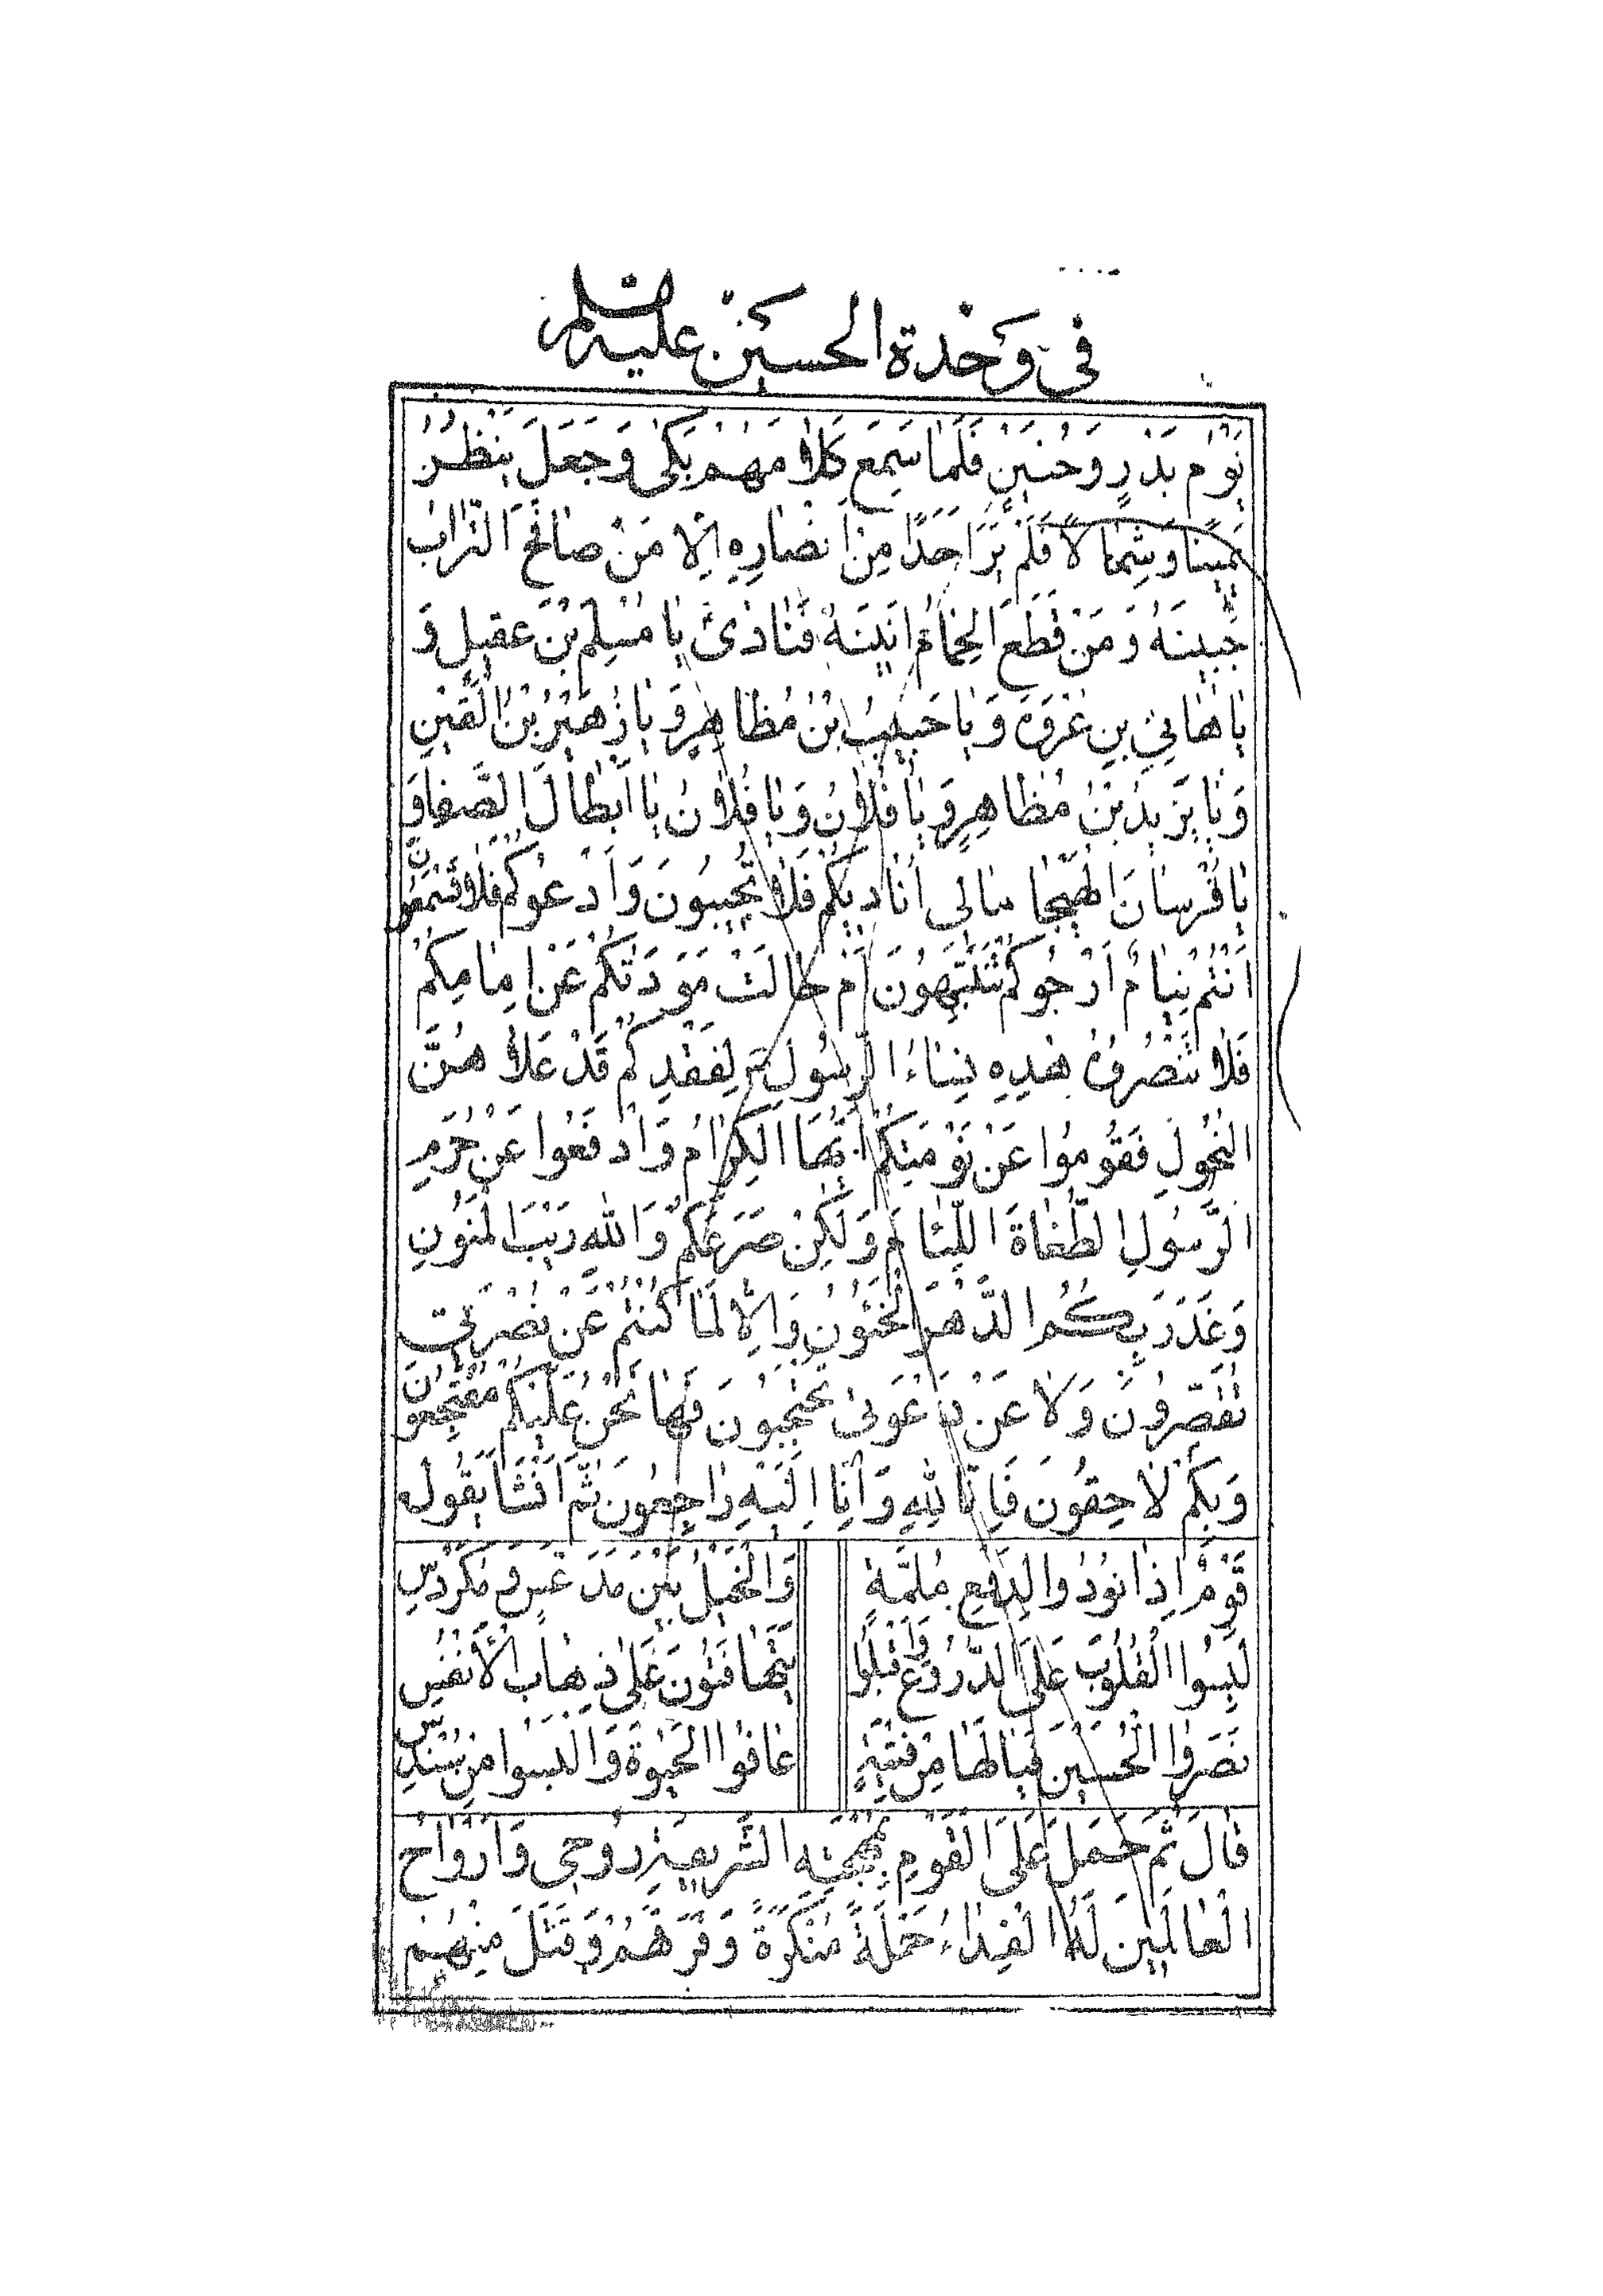 في وَحْدة الحسين عليه السلم
يَوْمَ بَدْرٍ وَحُنَيْنٍ فَلَمّا سَمِعَ كَلامَهُمْ بَكى وَجَعَلَ يَنْظُرُ
يَمينًا وَشِمالًا فَلَمْ يَرَ اَحَدًا مِنْ اَنْصارِهِ اِلّا مَنْ صافَحَ التُّرابُ
جَبينَهُ وَمَنْ قَطَعَ الحِمامُ اَنينَهُ فَنادىٰ يا مُسْلِمَ بْنَ عَقيلٍ وَ
يا هانِيَ بْنَ عُرْوَةَ وَيا حَبيبَ بْنَ مُظاهِرٍ وَيا زُهَيْرَ بْنَ الْقَيْنِ
وَيا يَزيدَ بْنَ مُظاهِرٍ وَيا فُلانُ وَيا فُلانُ يا اَبْطالَ الصَّفا وَ
يا فُرْسانَ الهَيْجا مالي اُناديكُمْ فَلا تُجيبُونَ وَاَدْعُوكُمْ فَلا تَسْمَعُونَ
اَنْتُمْ نِيامٌ اَرْجُوكُمْ تَنْتَبِهُونَ اَمْ حالَتْ مَوَدَّتُكُمْ عَنْ اِمامِكُمْ
فَلا تَنْصُرُوهُ هٰذِهِ نِساءُ الرَّسُولِ ص لِفَقْدِكُمْ قَدْ عَلاهُنَّ
النُّحُولُ فَقُومُوا عَنْ نَوْمَتِكُمْ اَيُّهَا الْكِرامُ وَادْفَعُوا عَنْ حَرَمِ
الرَّسُولِ الطُّغاةَ اللِّئامَ وَلٰكِنْ صَرَعَكُمْ وَاللهِ رَيْبُ الْمَنُونِ
وَغَدَرَ بِكُمُ الدَّهْرُ الْخَئُونُ وَاِلّا لَما كُنْتُمْ عَنْ نُصْرَتي
تَقْصُرُونَ وَلا عَنْ دَعْوَتي تَحْتَجِبُونَ فَها نَحْنُ عَلَيْكُمْ مُفْتَجِعُونَ
وَبِكُمْ لاحِقُونَ فَاِنّا لِلّهِ وَاِنّا اِلَيْهِ راجِعُونَ ثُمَّ اَنْشَأَ يَقُولُ
قَوْمٌ اِذا نُودُوا لِدَفْعِ مُلِمَّةٍ وَالْخَيْلُ بَيْنَ مُدَعَّسٍ وَمُكَرْدَسِ
لَبِسُوا الْقُلُوبَ عَلَى الدُّرُوعِ وَاَقْبَلُوا يَتَهافَتُونَ عَلىٰ ذَهابِ الْاَنْفُسِ
نَصَرُوا الْحُسَيْنَ فَيا لَها مِنْ فِتْيَةٍ عافُوا الْحَيوةَ وَاُلْبِسُوا مِنْ سُنْدُسِ
قالَ ثُمَّ حَمَلَ عَلَى الْقَوْمِ بِمُهْجَتِهِ الشَّريفَةِ رُوحي وَاَرْواحُ
الْعالَمينَ لَهُ الْفِداءُ حَمْلَةً مُنْكَرَةً وَفَرَّقَهُمْ وَقَتَلَ مِنْهُمْ